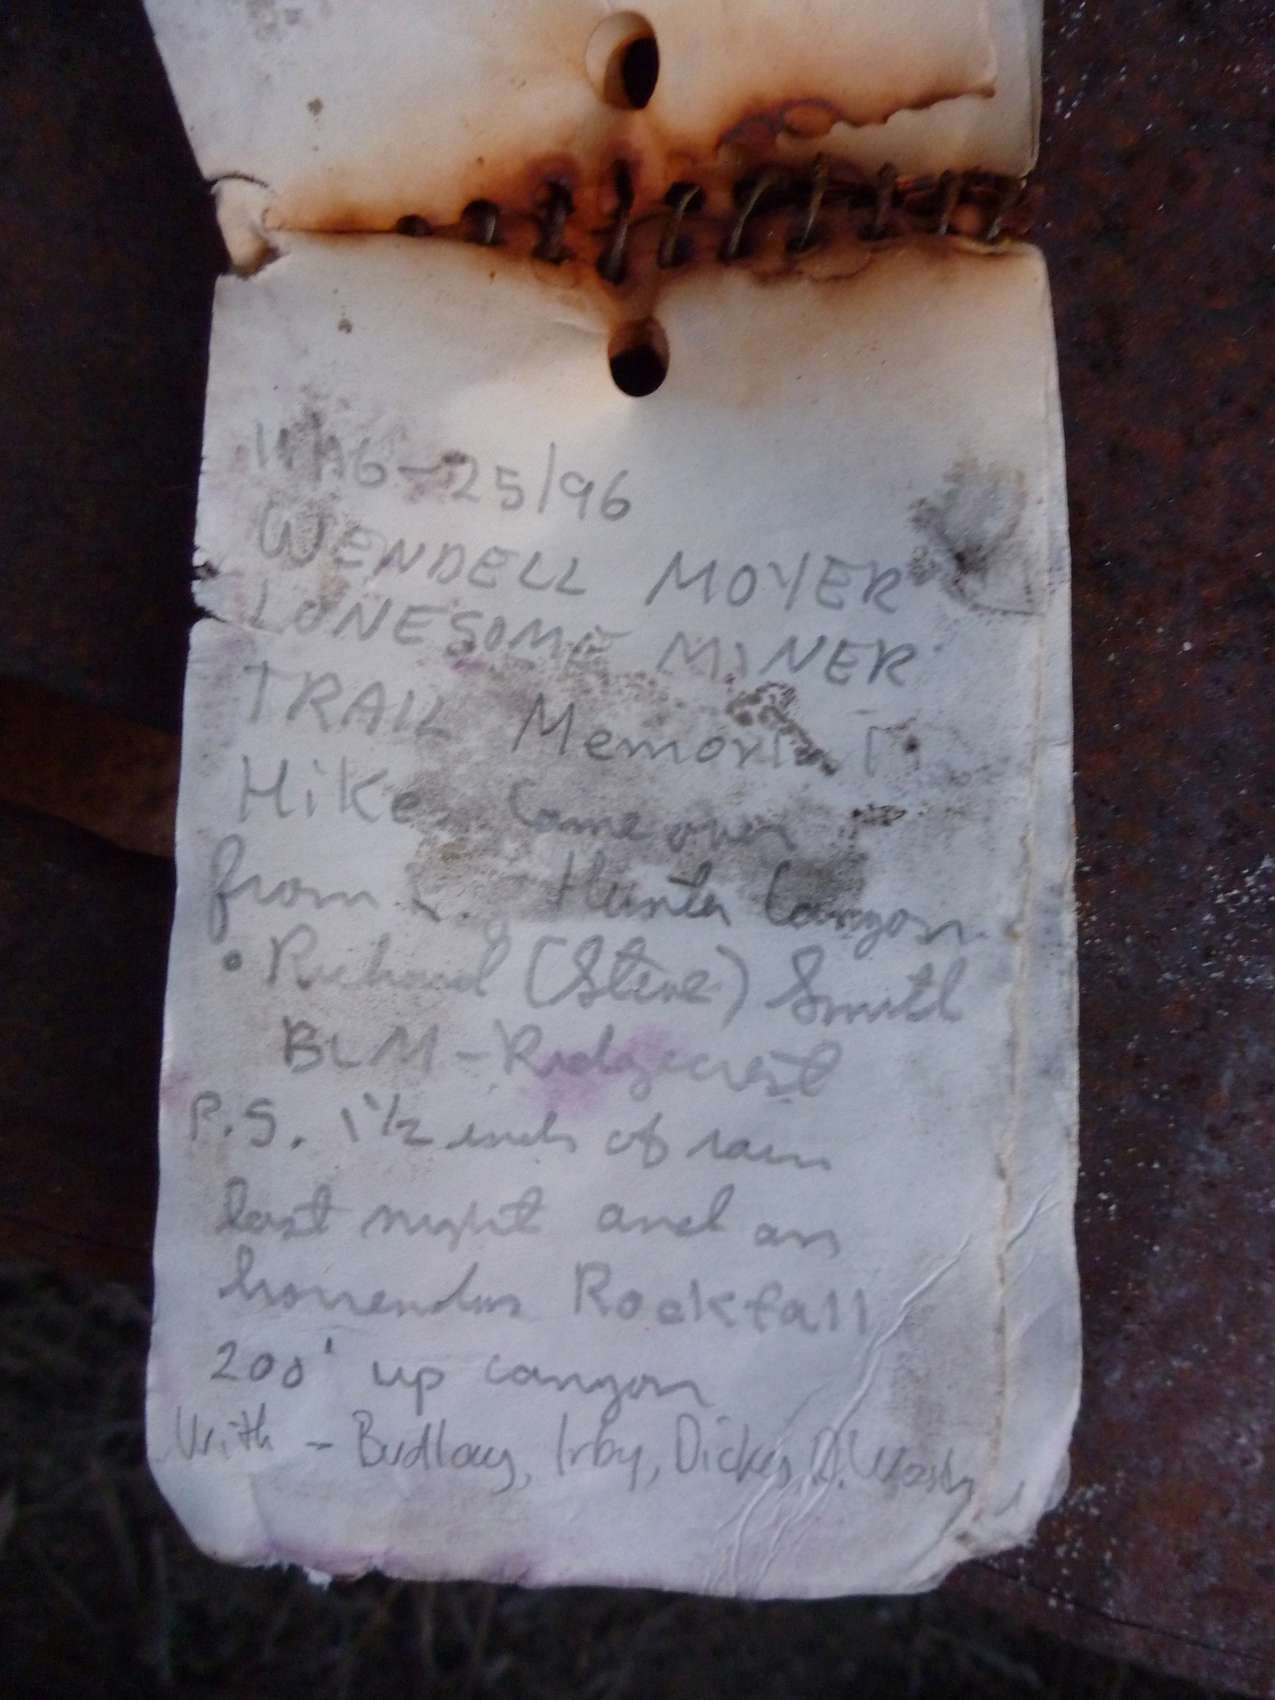 16-25/96
WENDELL MOYER
LONESOME MINER
TRAIL Memorial
Hike. Came over
from Hunter Canyon.
• Richard (Steve) Smith
BLM - Ridgecrest
P.S. 1 1/2 inch of rain
last night and an
horrendus Rockfall
200' up canyon
With - Budlong, Irby, Dickey, D.